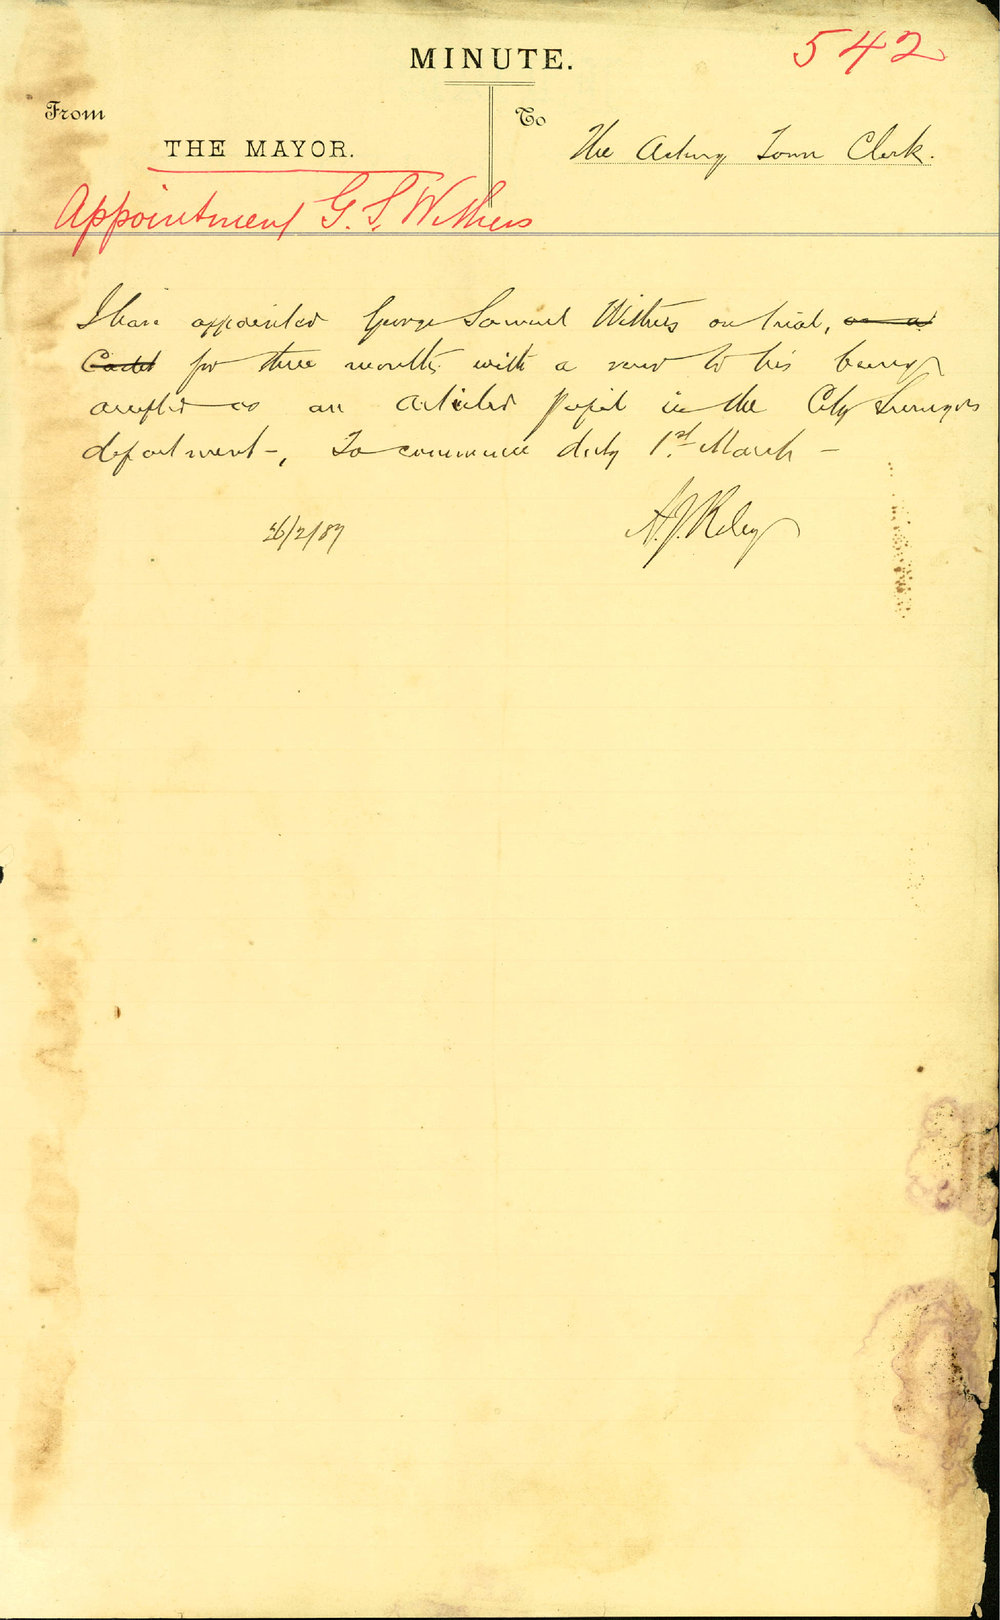 542
MINUTE.
From
To
THE MAYOR.
The Acting Town Clerk.
Appointment G. S. Withers
I have appointed George Samuel Withers on trial, as a
Cadet for three months with a view to his being
accepted as an articled pupil in the City Surveyors
department -, To commence duty 1st March -
26/2/87
A. J. Riley